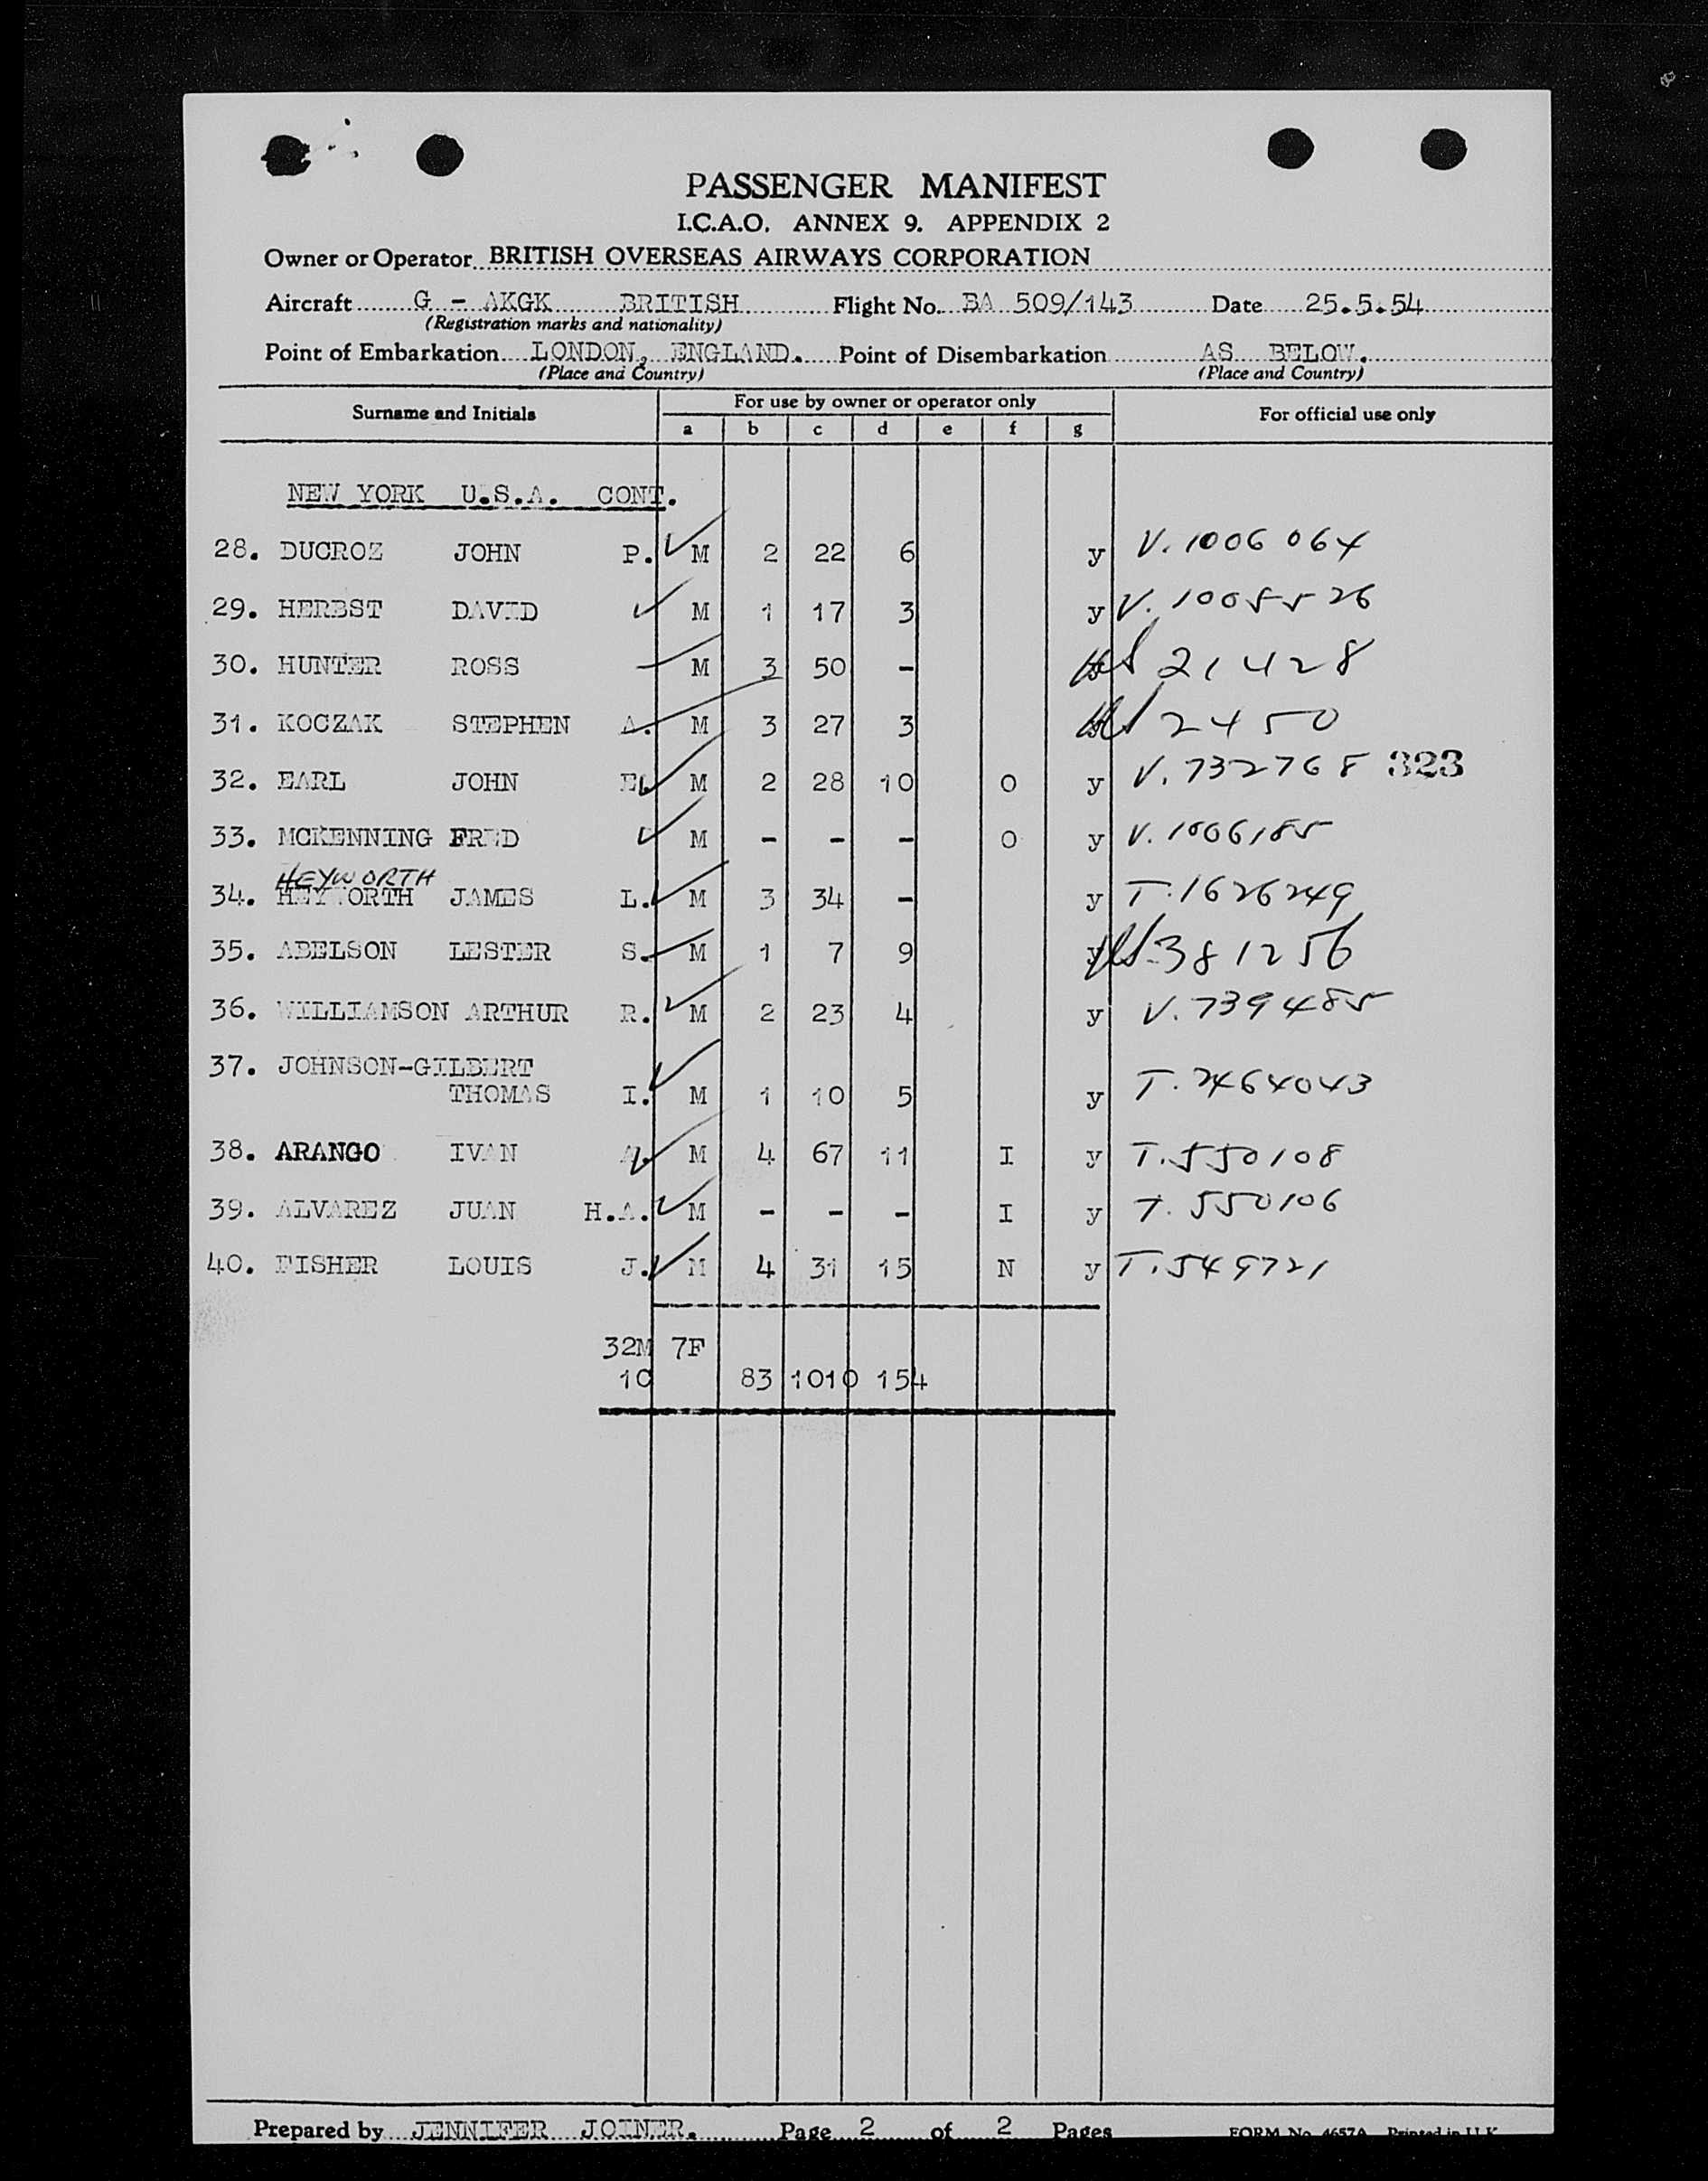 PASSENGER MANIFEST
I.C.A.O. ANNEX 9. APPENDIX 2
Owner or Operator BRITISH OVERSEAS AIRWAYS CORPORATION
Aircraft G - AKGK BRITISH Flight No. BA 509/143 Date 25.5.54
(Registration marks and nationality)
Point of Embarkation LONDON, ENGLAND. Point of Disembarkation AS BELOW.
(Place and Country) (Place and Country)
Surname and Initials For use by owner or operator only For official use only
a b c d e f g
NEW YORK U.S.A. CONT.
28. DUCROZ JOHN P. M 2 22 6 y V. 1006064
29. HERBST DAVID M 1 17 3 y V. 1005526
30. HUNTER ROSS M 3 50 - 21428
31. KOCZAK STEPHEN A. M 3 27 3 2450
32. EARL JOHN E. M 2 28 10 O y V. 732768 323
33. MCKENNING FRED M - - - O y V. 1006185
HEYWORTH
34. HEYWORTH JAMES L. M 3 34 - y T. 1626249
35. ABELSON LESTER S. M 1 7 9 y 381256
36. WILLIAMSON ARTHUR R. M 2 23 4 y V. 739485
37. JOHNSON-GILBERT
THOMAS I. M 1 10 5 y T. 2464043
38. ARANGO IVAN A. M 4 67 11 I y T. 550108
39. ALVAREZ JUAN H.A. M - - - I y T. 550106
40. FISHER LOUIS J. M 4 31 15 N y T. 549721
32M 7F
1C 83 1010 154
Prepared by JENNIFER JOINER. Page 2 of 2 Pages FORM No. 4657A Printed in U.K.